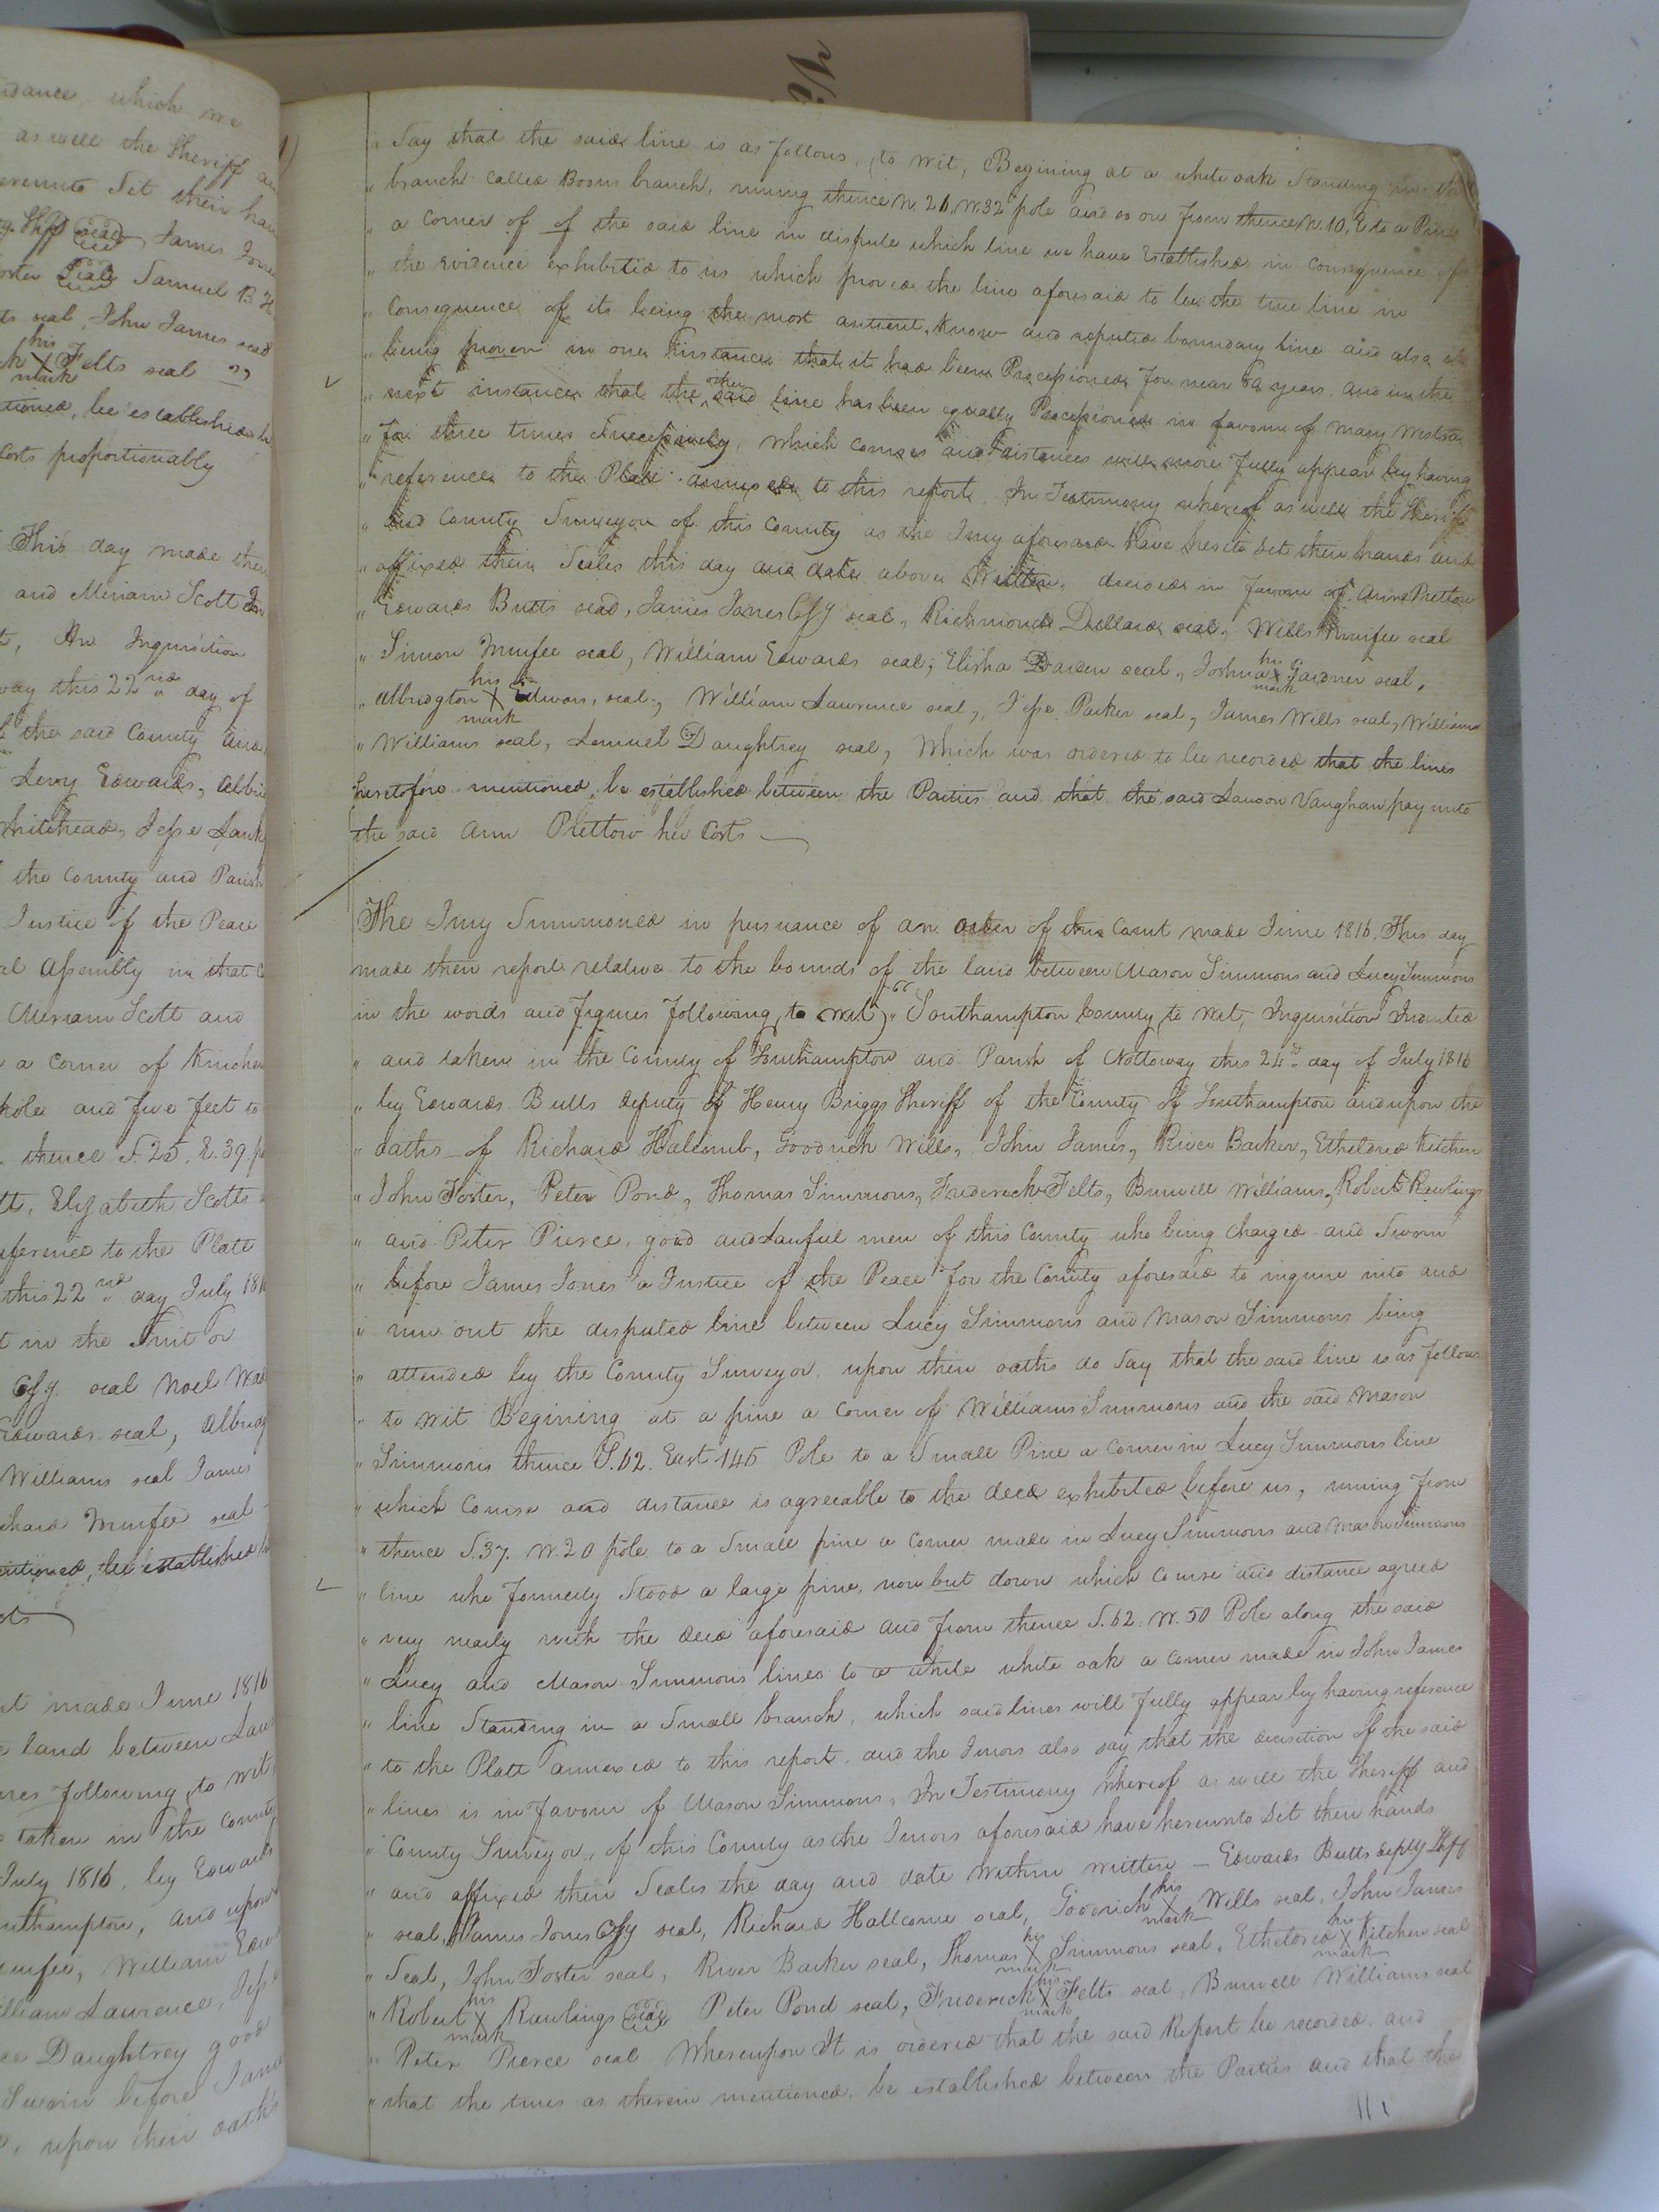 idance, which we
as well the Sheriff an
ereunto Set their han
Shff seal James Jone
oster Seal Samuel B. H
ts seal, John James seal
his
X Felts seal
mark
tioned, be established b
Costs proportionably
This day made their
and Miriam Scott
t, An Inquisition
way this 22nd day of
f the said County and
Levy Edwards, Albri
Whitehead, Jesse Lank
the County and Parish
Justice of the Peace
al Assembly in that C
Miriam Scott and
a Corner of Kinchen
Pole and five feet to
thence S. 25. E. 39. p
tt, Elizabeth Scotts
eference to the Platt
this 22nd day July 181
t in the Suit or
C S J. seal Noel Wa
Edwards seal, Albridg
Williams seal James
ichard Murfee seal
entioned, be established
sts
rt made June 1816
e land between Law
ures following, to wit
d taken in the County
July 1816. by Edwards
outhampton, and upon
urfee, William Edw
illiam Lawrence, Jess
Daughtrey good
Sworn before Jame
, upon their oaths
" Say that the said line is as follows, (to wit, Begining at a white oak Standing in the
" branch Called Boons branch, runing thence N. 26, W. 32 pole and so on from thence N. 10, E to a Pine
" a Corner of of the said line in dispute which line we have Established in Consequence of
" the evidence exhibited to us which proved the line aforesaid to be the true line in
" Consequence of its being the most antient, Know and reputed boundary line and also it
" being proven in one Instance that it had been Processioned for near 50 years, and in the
" next instance that the other said line has been equally Processioned in favour of Mary Westra
" for three times Successively, Which Courses and distances will more fully appear by having
" reference to the Platt annexed to this report, In Testimony whereof as well the Sheriff
" and County Surveyor of this County as the Jury aforesaid have hereto Set their hands and
" affixed their Seales this day and date above Written. decided in favour of Ann Pretlow
" Edwards Butts seal, James Jones C S J seal, Richmond Dellard seal, Wills Murfee seal
" Simon Murfee seal, William Edwards seal, Elisha Darden seal, Joshua his X mark Gardner seal,
" Albridgton his X mark Edwars, seal, William Lawrence seal, Jesse Parker seal, James Wills seal, William
" Williams seal, Lemuel Daughtrey seal, Which was ordered to be recorded that the lines
heretofore mentioned, be established between the Parties and that the said Lawson Vaughan pay unto
the said Ann Pretlow her Costs
The Jury Summoned in persuance of an order of this Court made June 1816. This day
made their report relative to the bounds of the land between Mason Simmons and Lucy Simmons
in the words and figures following, to wit) " Southampton County, to wit, Inquisition Indented
" and taken in the County of Southampton and Parish of Nottoway this 24th day of July 1816
" by Edwards Butts deputy of Henry Briggs Sheriff of the County of Southampton and upon the
" oaths of Richard Halcomb, Goodrich Wills, John James, River Barker, Etheldred Kitchen
" John Foster, Peter Pond, Thomas Simmons, Frederick Felts, Burwell Williams, Robert Rawlings
" and Peter Pierce, good and Lawful men of this County who being Charged and Sworn
" before James Jones a Justice of the Peace for the County aforesaid to inquire into and
" run out the disputed line between Lucy Simmons and Mason Simmons being
" attended by the County Surveyor, upon their oaths do Say that the said line is as follows
" to wit Begining at a pine a Corner of Williams Simmons and the said Mason
" Simmons thence S. 62. East 146 Pole to a Small Pine a Corner in Lucy Simmons line
" which Course and distance is agreeable to the deed exhibited before us, runing from
" thence S. 37. W. 20 pole to a Small pine a Corner made in Lucy Simmons and Mason Simmons
" line whe formerly Stood a large pine, now but down which Course and distance agreed
" very nearly with the deed aforesaid and from thence S. 62. W. 50 Pole along the said
" Lucy and Mason Simmons lines to a white white oak a Corner made in John James
" line Standing in a Small branch, which said lines will fully appear by having reference
" to the Platt annexed to this report, and the Jurors also say that the decisition of the said
" lines is in favour of Mason Simmons, In Testimony whereof as well the Sheriff and
" County Surveyor, of this County as the Jurors aforesaid have hereunto Set their hands
" and affixed their Seales the day and date within written — Edwards Butts depty Shff
" seal, James Jones C S J seal, Richard Hallcome seal, Goodrich his X mark Wills seal, John James
" Seal, John Foster seal, River Barker seal, Thomas his X mark Simmons seal, Etheldred his X mark Kitchen seal
" Robert his X mark Rawlings seal Peter Pond seal, Frederick his X mark Felts seal, Burwell Williams seal
" Peter Pierce seal Whereupon It is ordered that the said Report be recorded, and
" that the lines as therein mentioned, be established between the Parties and that the
111